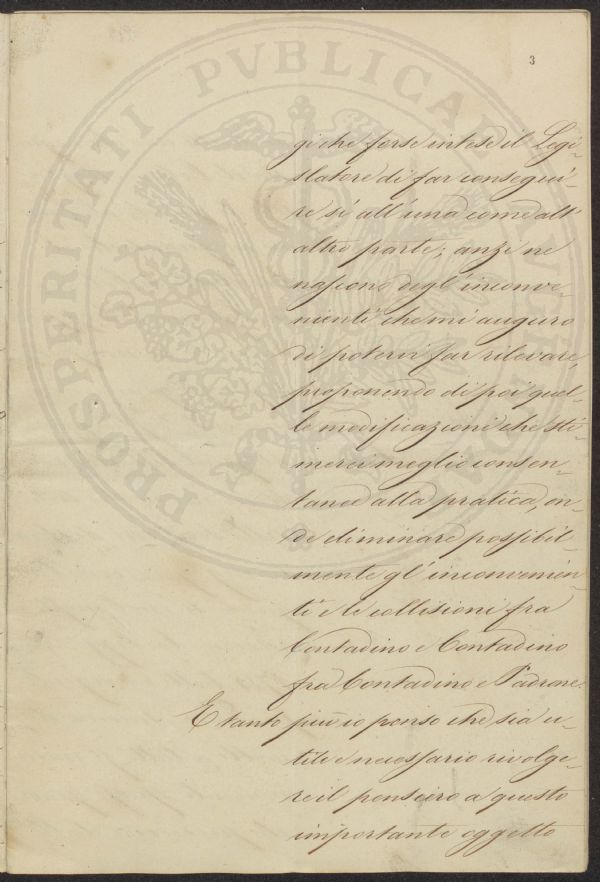 3
gi che forse intese il Legi-
slatore di far consegui-
re sì all'una come all'
altra parte; anzi ne
nascono degl'inconve-
nienti che mi auguro
di potervi far rilevare,
proponendo di poi quel-
le modificazioni che sti-
merei meglio consen-
tanee alla pratica, on-
de eliminare possibil-
mente gl'inconvenien-
ti e le collisioni fra
Contadino e Contadino
fra Contadino e Padrone.
E tanto più io penso che sia u-
tile e necessario rivolge-
re il pensiero a questo
importante oggetto
PROSPERITATI PVBLICAE